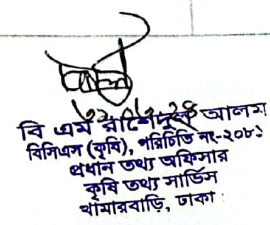 বি এম রাশেদুল আলম
বিসিএস (কৃষি), পরিচিতি নং-২০৮১
প্রধান তথ্য অফিসার
কৃষি তথ্য সার্ভিস
খামারবাড়ি, ঢাকা